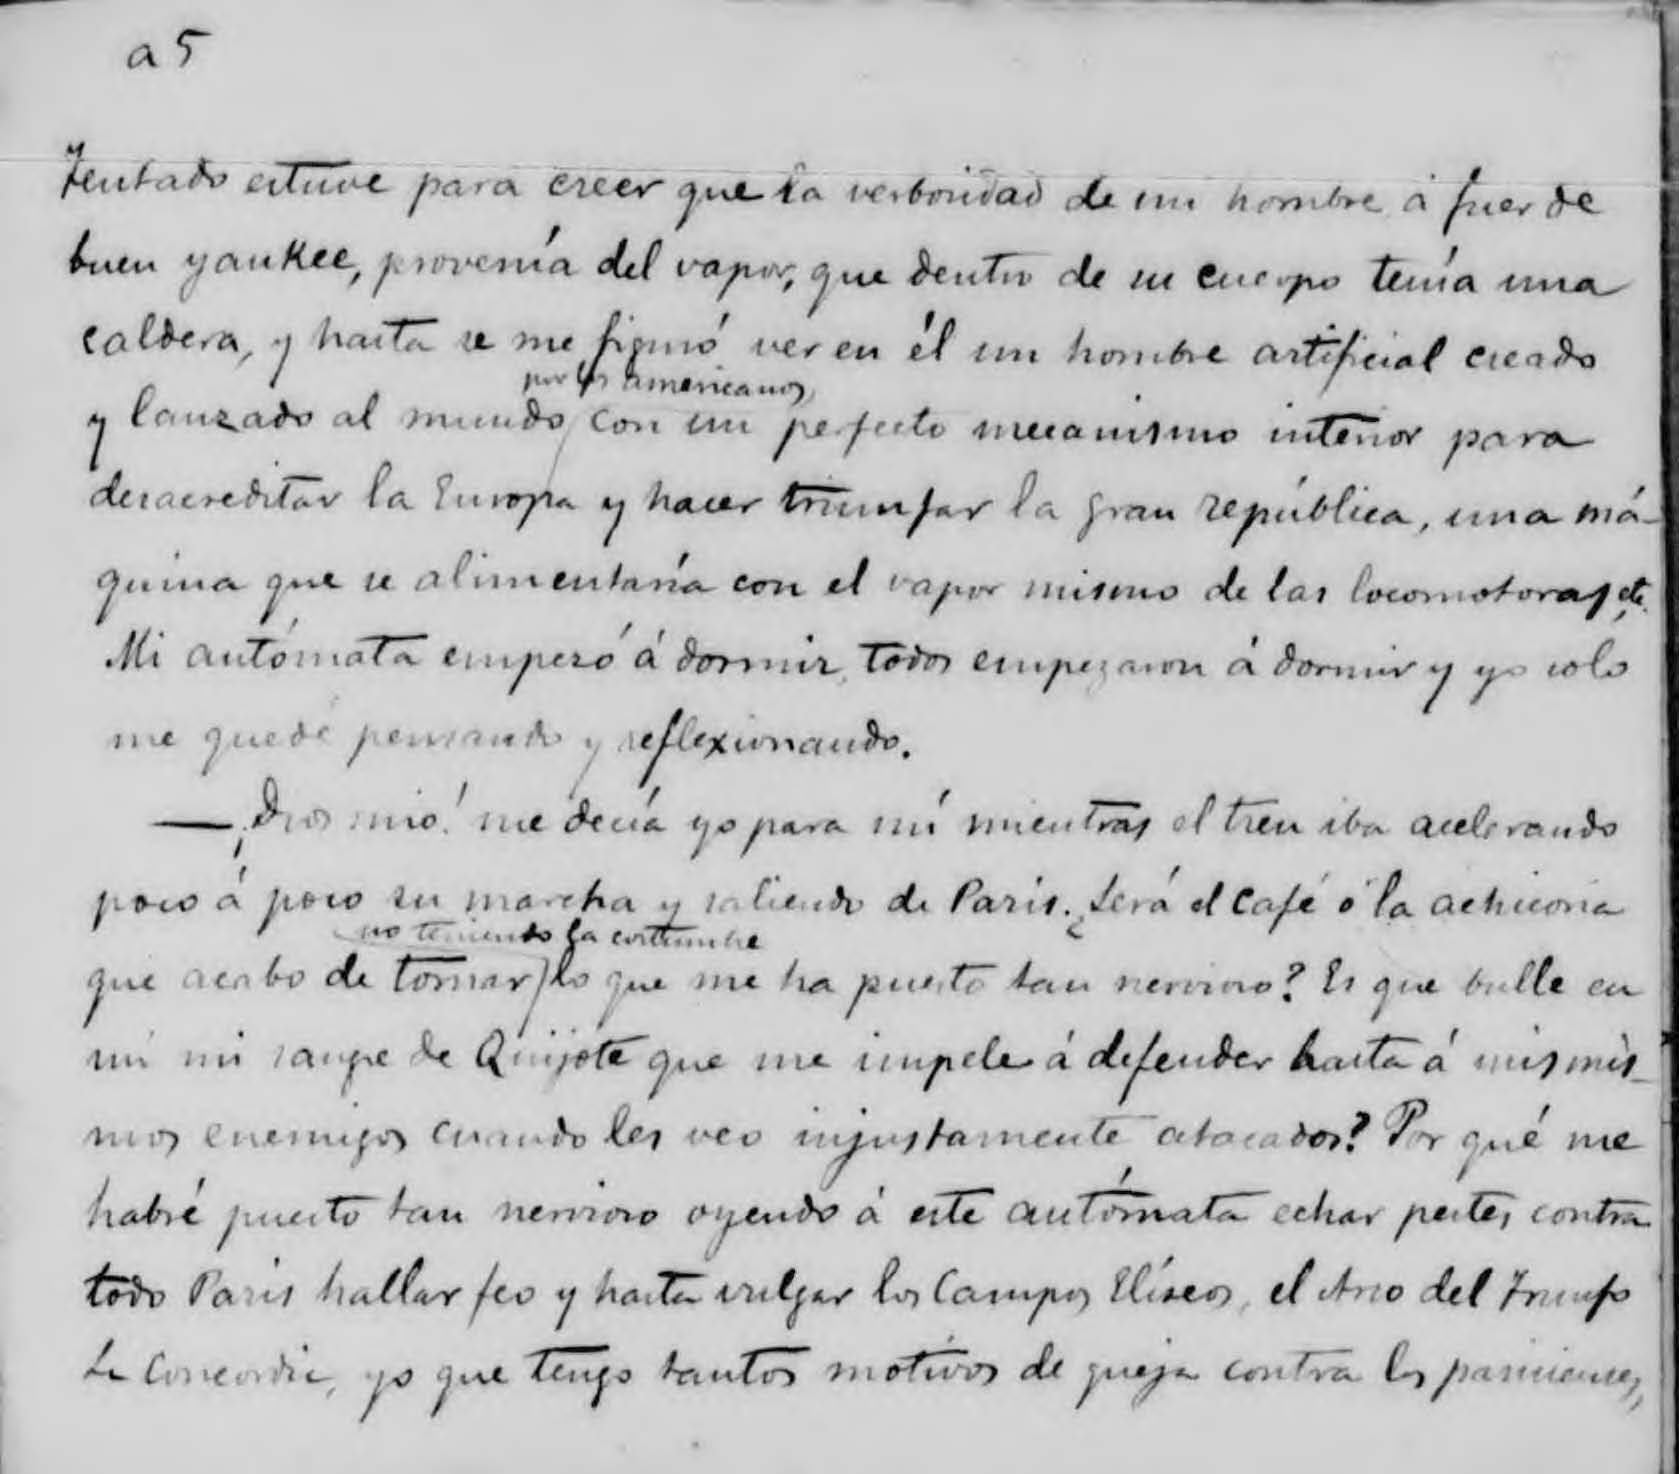 a5
Tentado estuve para creer que la verbosidad de mi hombre á fuer de
buen yankee, provenía del vapor, que dentro de su cuerpo tenía una
caldera, y hasta se me figuró ver en él un hombre artificial creado
por los americanos,
y lanzado al mundo con un perfecto mecanismo interior para
desacreditar la Europa y hacer triumfar la gran república, una má-
quina que se alimentaría con el vapor mismo de las locomotoras, etc.
Mi autómata empezó á dormir, todos empezaron á dormir y yo solo
me quedé pensando y reflexionando.
— ¡Dios mio! me decía yo para mí mientras el tren iba acelerando
poco á poco su marcha y saliendo de Paris. ¿Será el café ó la achicoria
no teniendo la costumbre
que acabo de tomar lo que me ha puesto tan nervioso? Es que bulle en
mí mi sangre de Quijote que me impele á defender hasta á mis mis-
mos enemigos cuando les veo injustamente atacados? Por qué me
habré puesto tan nervioso oyendo á este autómata echar pestes contra
todo Paris hallar feo y hasta vulgar los Campos Elíseos, el Arco del Triunfo
La Concordia, yo que tengo tantos motivos de queja contra los parisienses,